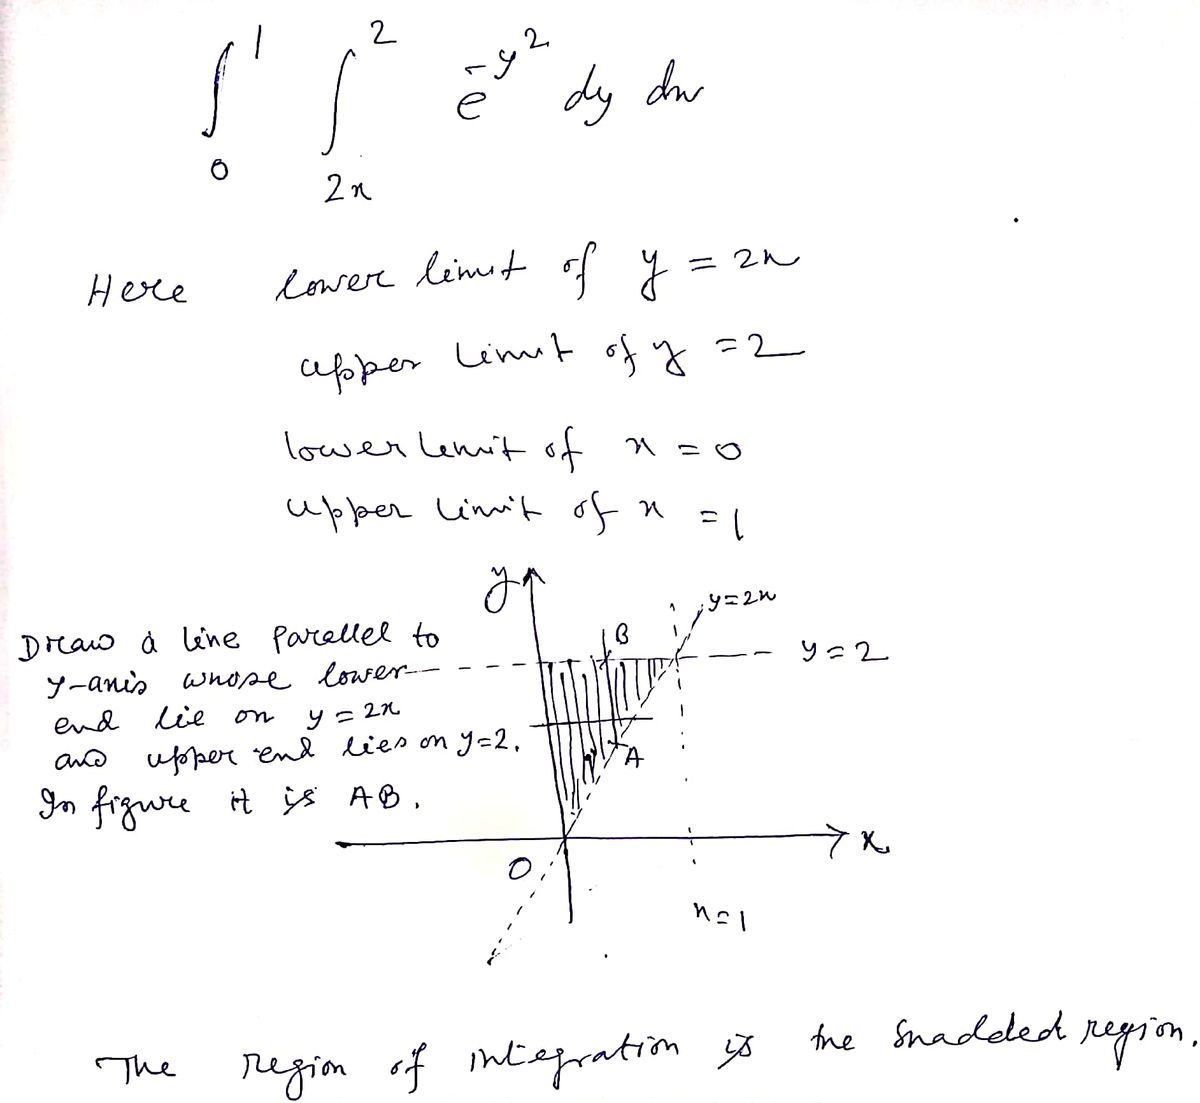 ∫₀¹ ∫₂ₓ² e^{-y²} dy dx
Here lower limit of y = 2x
upper limit of y = 2
lower limit of x = 0
upper limit of x = 1
Draw a line Parallel to
y-axis whose lower
end lie on y = 2x
and upper end lies on y=2.
In figure it is AB.
y
B
y=2x
y=2
A
O
x
x=1
The region of integration is the shadded region.